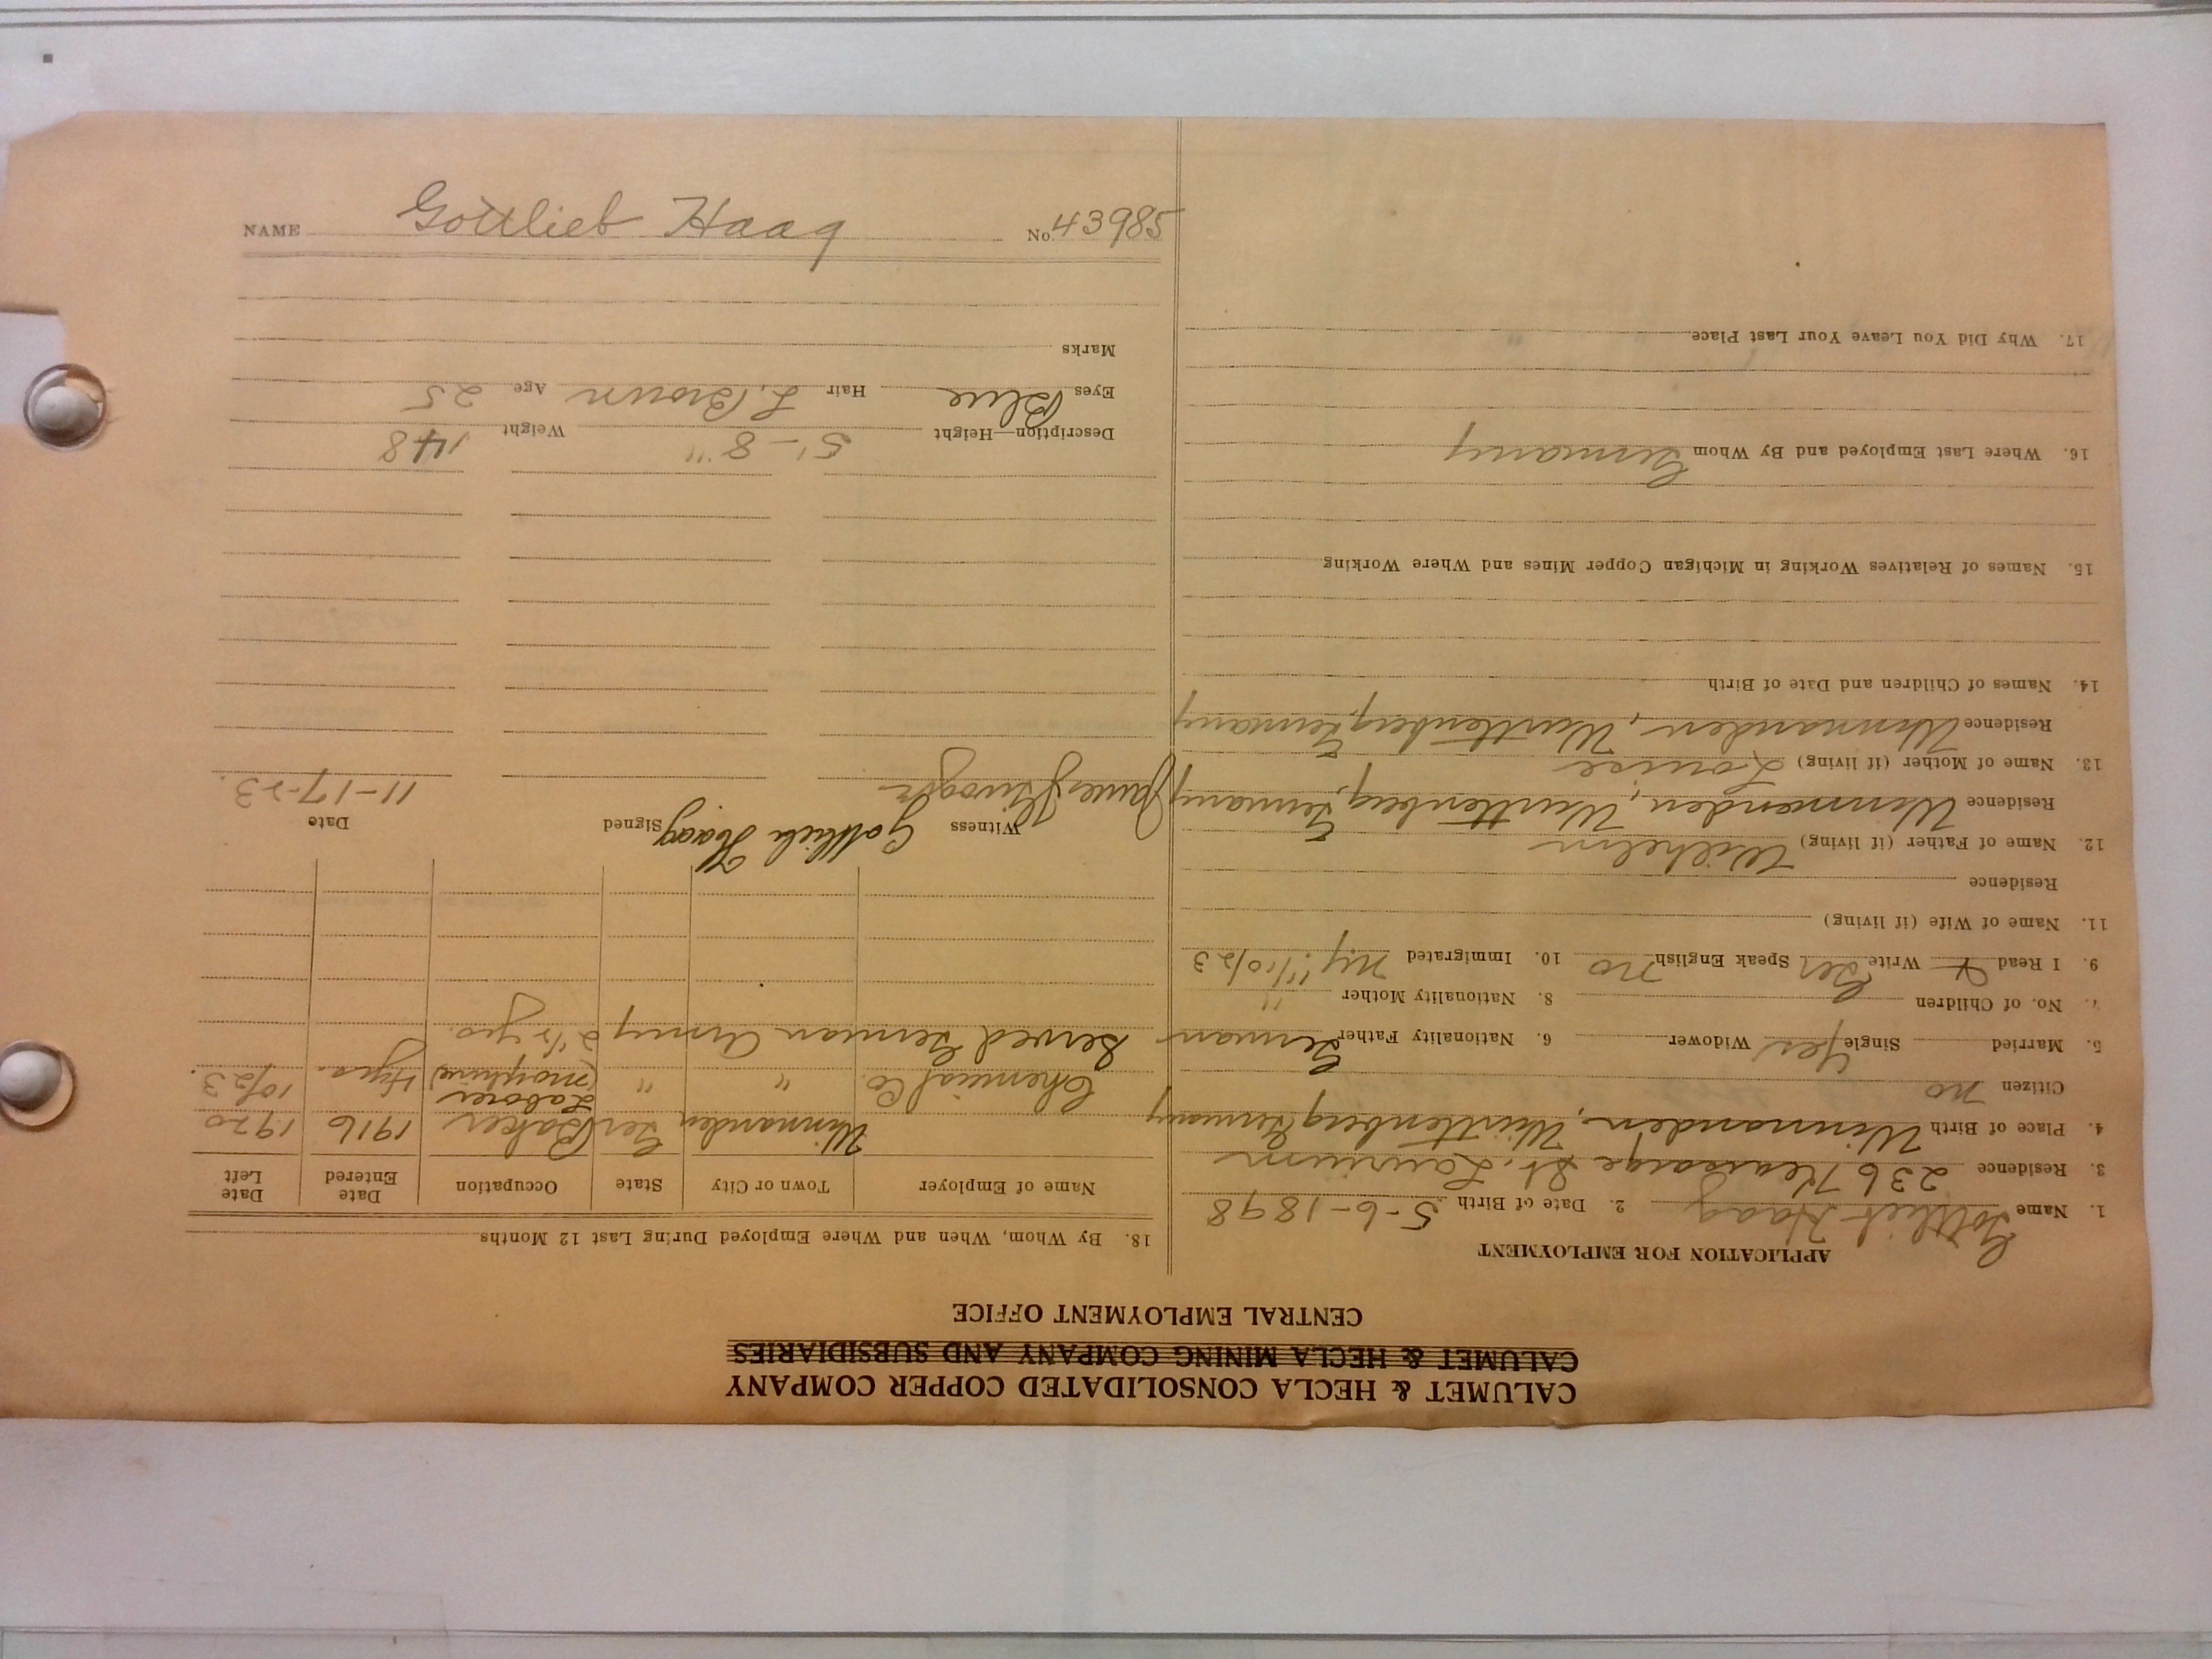 CALUMET & HECLA CONSOLIDATED COPPER COMPANY
CALUMET & HECLA MINING COMPANY AND SUBSIDIARIES
CENTRAL EMPLOYMENT OFFICE
APPLICATION FOR EMPLOYMENT
1. Name Gottlieb Haag 2. Date of Birth 5-6-1898
3. Residence 236 Kearsarge St. Laurium
4. Place of Birth Winnanden, Wurttenberg Germany
Citizen no
5. Married Single Yes Widower 6. Nationality Father German
7. No. of Children 8. Nationality Mother "
9. I Read & Write Ger Speak English no 10. Immigrated N.Y. 11/10/23
11. Name of Wife (if living)
Residence
12. Name of Father (if living) Wilhelm
Residence Winnanden, Wurttenberg, Germany
13. Name of Mother (if living) Louise
Residence Winnanden, Wurttenberg, Germany
14. Names of Children and Date of Birth
15. Names of Relatives Working in Michigan Copper Mines and Where Working
16. Where Last Employed and By Whom Germany
17. Why Did You Leave Your Last Place
18. By Whom, When and Where Employed During Last 12 Months
Name of Employer Town or City State Occupation Date Entered Date Left
Winnanden Ger Baker 1916 1920
Chemical Co. " " Laborer (morphine) 4 yrs. 10/23.
Served German Army 2 1/2 yrs.
Witness Signed Gottlieb Haag Date
James 11-17-23.
Description—Height 5'-8" Weight 148
Eyes Blue Hair L. Brown Age 25
Marks
NAME Gottlieb Haag No. 43985